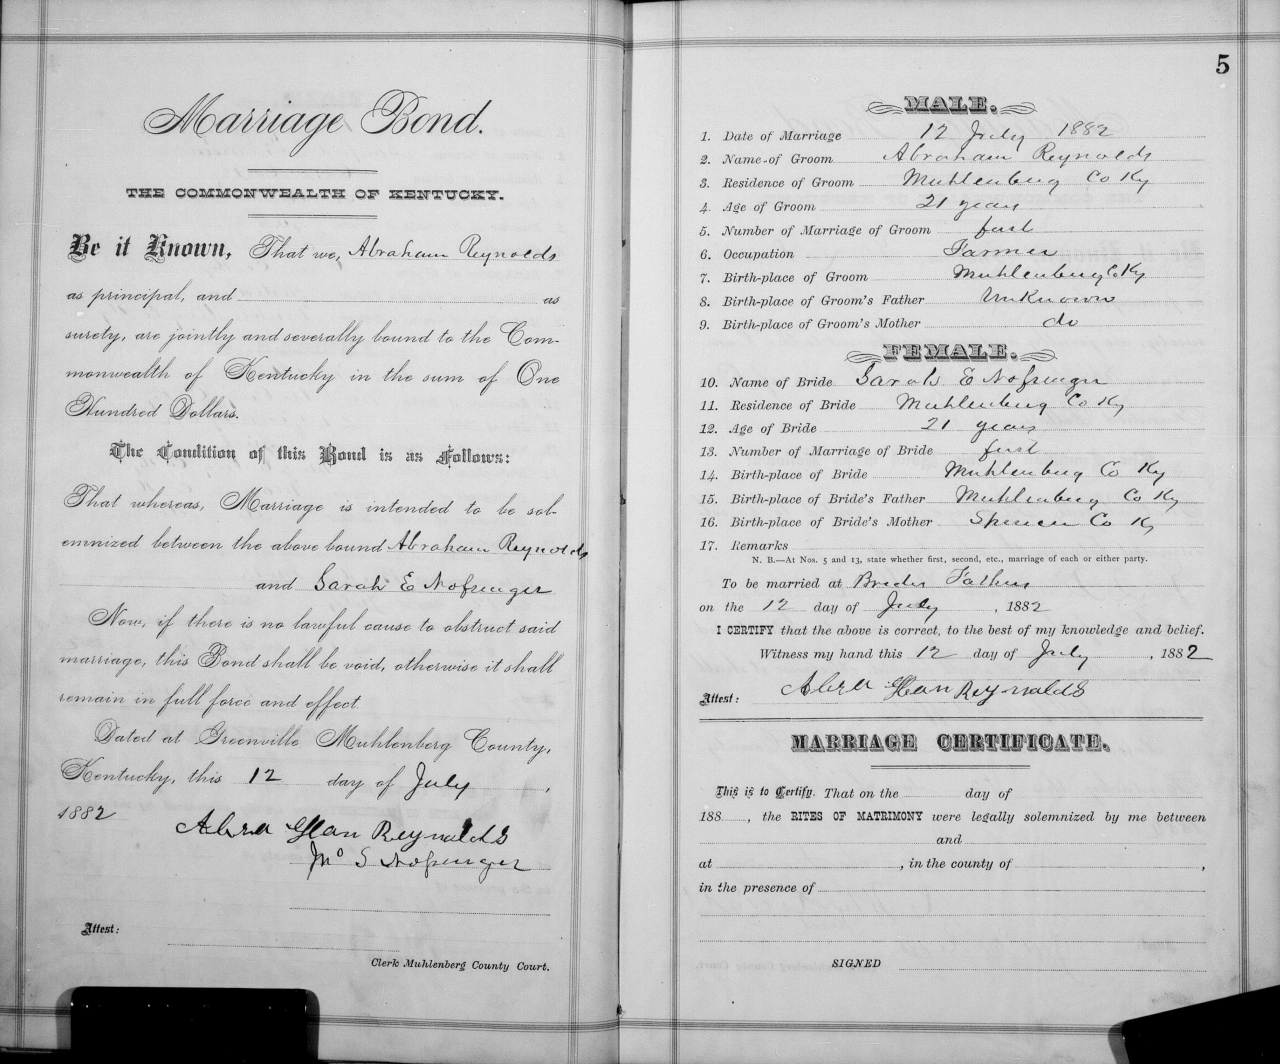 Marriage Bond.
THE COMMONWEALTH OF KENTUCKY.
Be it Known, That we, Abraham Reynolds
as principal, and as
surety, are jointly and severally bound to the Com-
monwealth of Kentucky in the sum of One
Hundred Dollars.
The Condition of this Bond is as Follows:
That whereas, Marriage is intended to be sol-
emnized between the above bound Abraham Reynolds
and Sarah E Nofsinger
Now, if there is no lawful cause to obstruct said
marriage, this Bond shall be void, otherwise it shall
remain in full force and effect.
Dated at Greenville Muhlenberg County,
Kentucky, this 12 day of July,
1882
Abra Ham Reynolds
Jno S Nofsinger
Attest:
Clerk Muhlenberg County Court.
5
MALE.
1. Date of Marriage 12 July 1882
2. Name of Groom Abraham Reynolds
3. Residence of Groom Muhlenburg Co Ky
4. Age of Groom 21 years
5. Number of Marriage of Groom first
6. Occupation Farmer
7. Birth-place of Groom Muhlenburg Co Ky
8. Birth-place of Groom's Father Unknown
9. Birth-place of Groom's Mother do
FEMALE.
10. Name of Bride Sarah E Nofsinger
11. Residence of Bride Muhlenburg Co Ky
12. Age of Bride 21 years
13. Number of Marriage of Bride first
14. Birth-place of Bride Muhlenburg Co Ky
15. Birth-place of Bride's Father Muhlenburg Co Ky
16. Birth-place of Bride's Mother Spencer Co Ky
17. Remarks
N. B.—At Nos. 5 and 13, state whether first, second, etc., marriage of each or either party.
To be married at Brides Fathers
on the 12 day of July, 1882
I CERTIFY that the above is correct, to the best of my knowledge and belief.
Witness my hand this 12 day of July, 1882
Attest: Abra Ham Reynolds
MARRIAGE CERTIFICATE.
This is to Certify. That on the day of
188 , the RITES OF MATRIMONY were legally solemnized by me between
and
at , in the county of ,
in the presence of
SIGNED